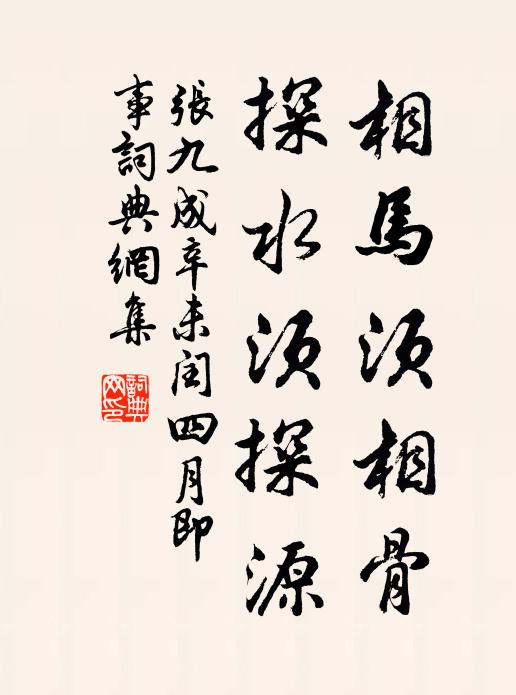 相馬須相骨
探水須探源
張九成辛未閏四月即
事詞典網集
詞典網印